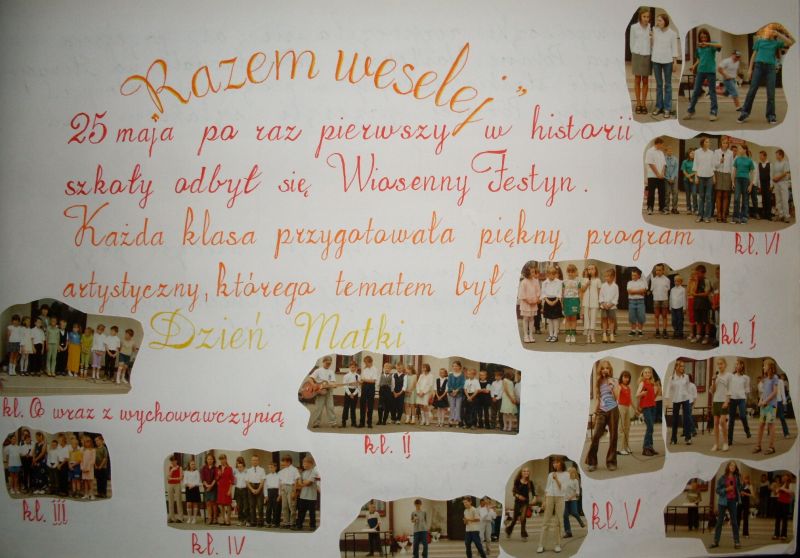 "Razem weselej"
25 maja po raz pierwszy w historii
szkoły odbył się Wiosenny Festyn.
Każda klasa przygotowała piękny program
artystyczny, którego tematem był
Dzień Matki
kl. VI
kl. I
kl. O wraz z wychowawczynią
kl. II
kl. III
kl. IV
kl. V